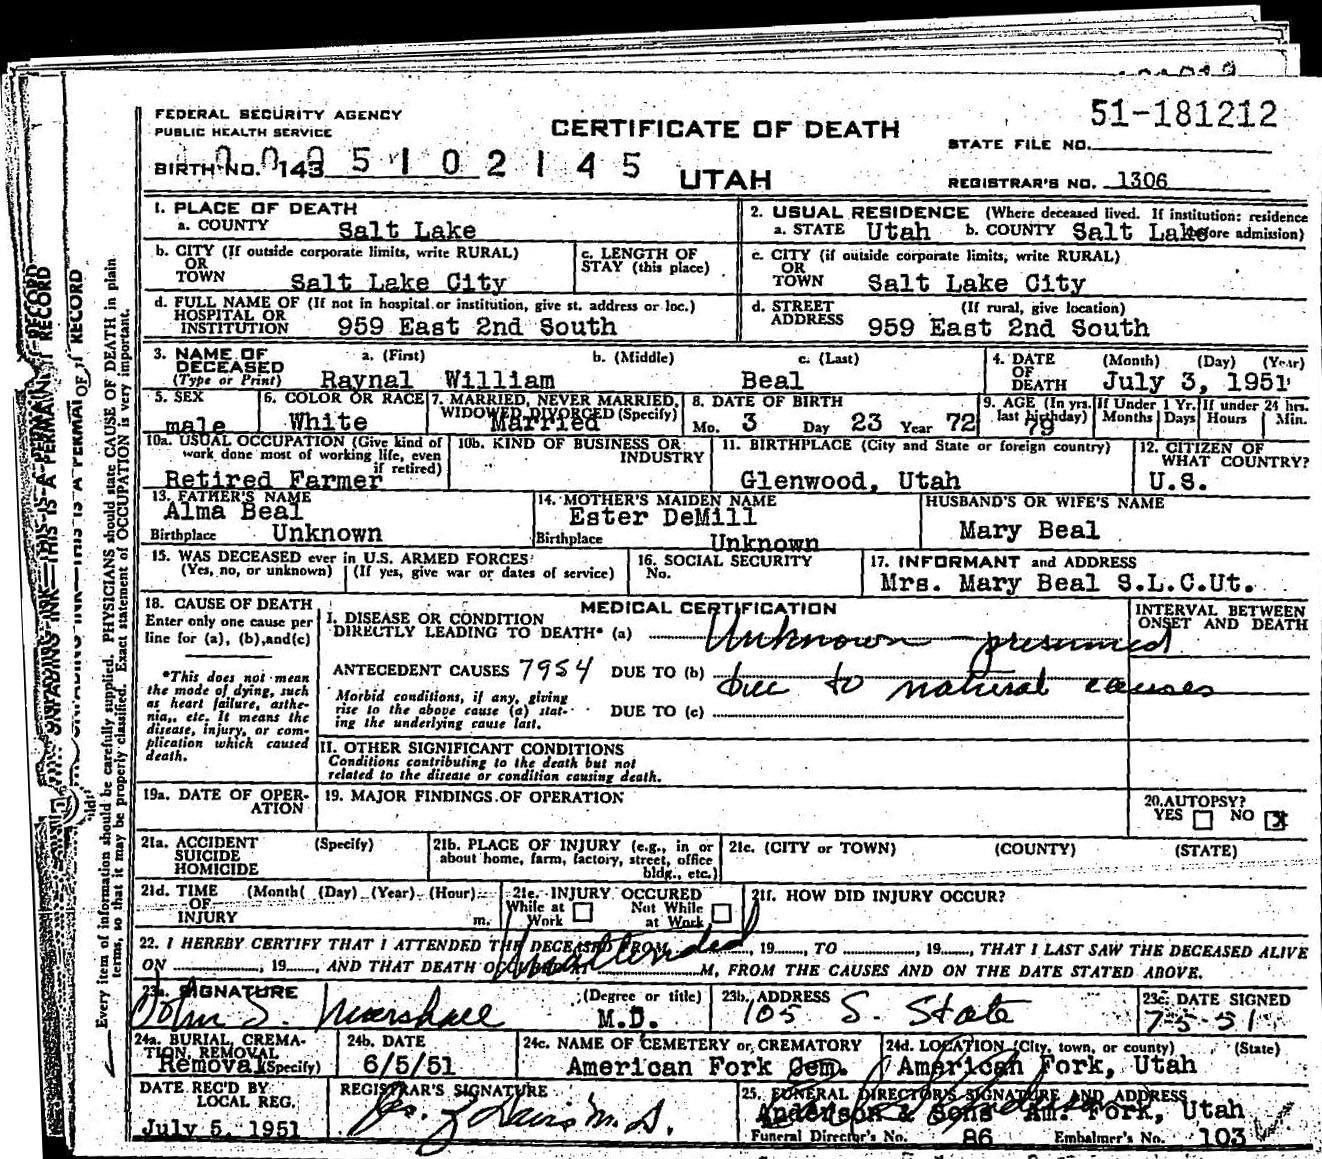 51-181212
FEDERAL SECURITY AGENCY
PUBLIC HEALTH SERVICE
CERTIFICATE OF DEATH
STATE FILE NO.
BIRTH NO. 143 5 1 0 2 1 4 5
UTAH
REGISTRAR'S NO. 1306
1. PLACE OF DEATH
a. COUNTY Salt Lake
2. USUAL RESIDENCE (Where deceased lived. If institution: residence
a. STATE Utah b. COUNTY Salt Lake ore admission)
b. CITY (If outside corporate limits, write RURAL)
OR
TOWN Salt Lake City
c. LENGTH OF
STAY (this place)
c. CITY (if outside corporate limits, write RURAL)
OR
TOWN Salt Lake City
d. FULL NAME OF (If not in hospital or institution, give st. address or loc.)
HOSPITAL OR
INSTITUTION 959 East 2nd South
d. STREET (If rural, give location)
ADDRESS 959 East 2nd South
3. NAME OF
DECEASED
(Type or Print)
a. (First) b. (Middle) c. (Last)
Raynal William Beal
4. DATE (Month) (Day) (Year)
OF
DEATH July 3, 1951
5. SEX
male
6. COLOR OR RACE
White
7. MARRIED, NEVER MARRIED,
WIDOWED, DIVORCED (Specify)
Married
8. DATE OF BIRTH
Mo. 3 Day 23 Year 72
9. AGE (In yrs.
last birthday)
79
If Under 1 Yr.
Months Days
If under 24 hrs.
Hours Min.
10a. USUAL OCCUPATION (Give kind of
work done most of working life, even
if retired)
Retired Farmer
10b. KIND OF BUSINESS OR
INDUSTRY
11. BIRTHPLACE (City and State or foreign country)
Glenwood, Utah
12. CITIZEN OF
WHAT COUNTRY?
U.S.
13. FATHER'S NAME
Alma Beal
Birthplace Unknown
14. MOTHER'S MAIDEN NAME
Ester DeMill
Birthplace Unknown
HUSBAND'S OR WIFE'S NAME
Mary Beal
15. WAS DECEASED ever in U.S. ARMED FORCES?
(Yes, no, or unknown) (If yes, give war or dates of service)
16. SOCIAL SECURITY
No.
17. INFORMANT and ADDRESS
Mrs. Mary Beal S.L.C.Ut.
18. CAUSE OF DEATH
Enter only one cause per
line for (a), (b), and (c)
*This does not mean
the mode of dying, such
as heart failure, asthe-
nia, etc. It means the
disease, injury, or com-
plication which caused
death.
MEDICAL CERTIFICATION
INTERVAL BETWEEN
ONSET AND DEATH
I. DISEASE OR CONDITION
DIRECTLY LEADING TO DEATH* (a) Unknown presumed
ANTECEDENT CAUSES 7954 DUE TO (b) due to natural causes
Morbid conditions, if any, giving
rise to the above cause (a) stat-
ing the underlying cause last.
DUE TO (c)
II. OTHER SIGNIFICANT CONDITIONS
Conditions contributing to the death but not
related to the disease or condition causing death.
19a. DATE OF OPER-
ATION
19. MAJOR FINDINGS OF OPERATION
20. AUTOPSY?
YES NO X
21a. ACCIDENT (Specify)
SUICIDE
HOMICIDE
21b. PLACE OF INJURY (e.g., in or
about home, farm, factory, street, office
bldg., etc.)
21c. (CITY or TOWN) (COUNTY) (STATE)
21d. TIME (Month) (Day) (Year) (Hour)
OF
INJURY m.
21e. INJURY OCCURED
While at Not While
Work at Work
21f. HOW DID INJURY OCCUR?
22. I HEREBY CERTIFY THAT I ATTENDED THE DECEASED FROM Unattended, 19, TO, 19, THAT I LAST SAW THE DECEASED ALIVE
ON, 19, AND THAT DEATH OCCURRED AT M, FROM THE CAUSES AND ON THE DATE STATED ABOVE.
23a. SIGNATURE (Degree or title)
John S. Marshall M.D.
23b. ADDRESS
105 S. State
23c. DATE SIGNED
7-5-51
24a. BURIAL, CREMA-
TION, REMOVAL
Removal (Specify)
24b. DATE
6/5/51
24c. NAME OF CEMETERY or CREMATORY
American Fork Cem.
24d. LOCATION (City, town, or county) (State)
American Fork, Utah
DATE REC'D BY
LOCAL REG.
July 5, 1951
REGISTRAR'S SIGNATURE
M.D.
25. FUNERAL DIRECTOR'S SIGNATURE AND ADDRESS
Anderson & Sons Am. Fork, Utah
Funeral Director's No. 86 Embalmer's No. 103
Every item of information should be carefully supplied. PHYSICIANS should state CAUSE OF DEATH in plain
terms, so that it may be properly classified. Exact statement of OCCUPATION is very important.
UNFADING INK—THIS IS A PERMANENT RECORD